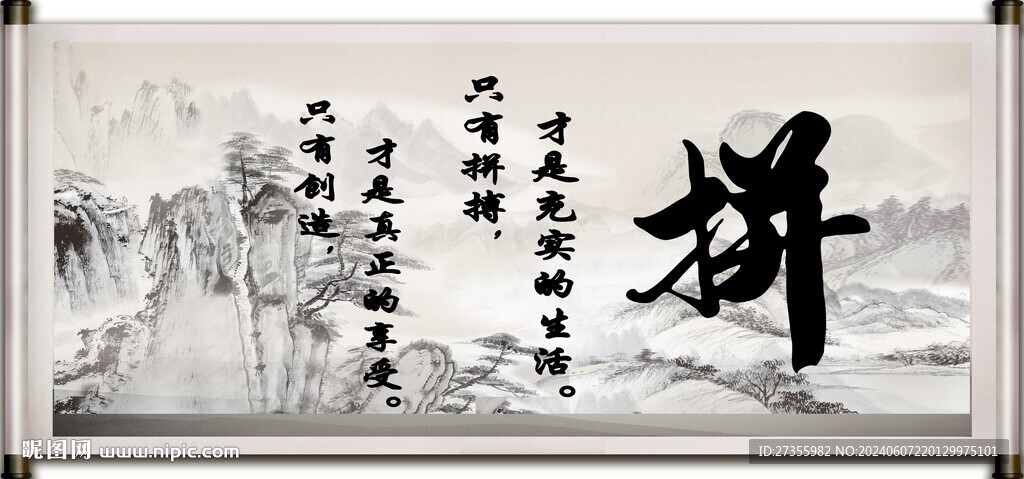 拼
只有创造，
才是真正的享受。
只有拼搏，
才是充实的生活。
昵图网 www.nipic.com
ID:27355982 NO:20240607220129975101